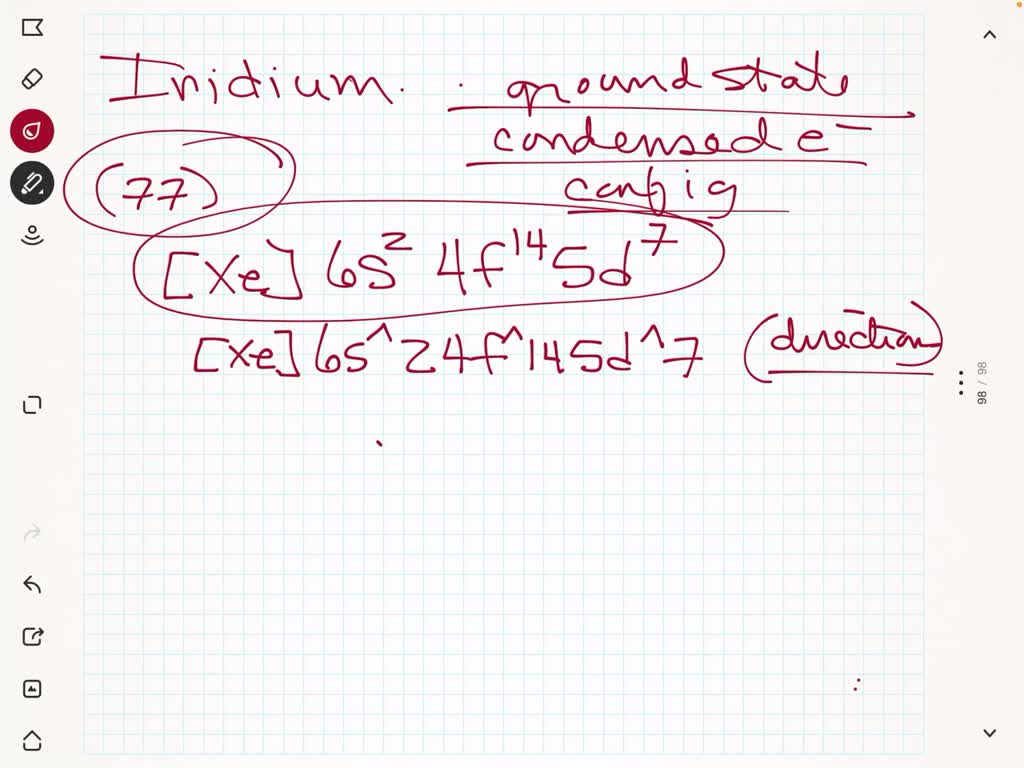 Iridium. . ground state
condensed e⁻
(77) config
[Xe] 6s² 4f¹⁴ 5d⁷
[Xe] 6s^2 4f^14 5d^7 (direction)
98 / 98